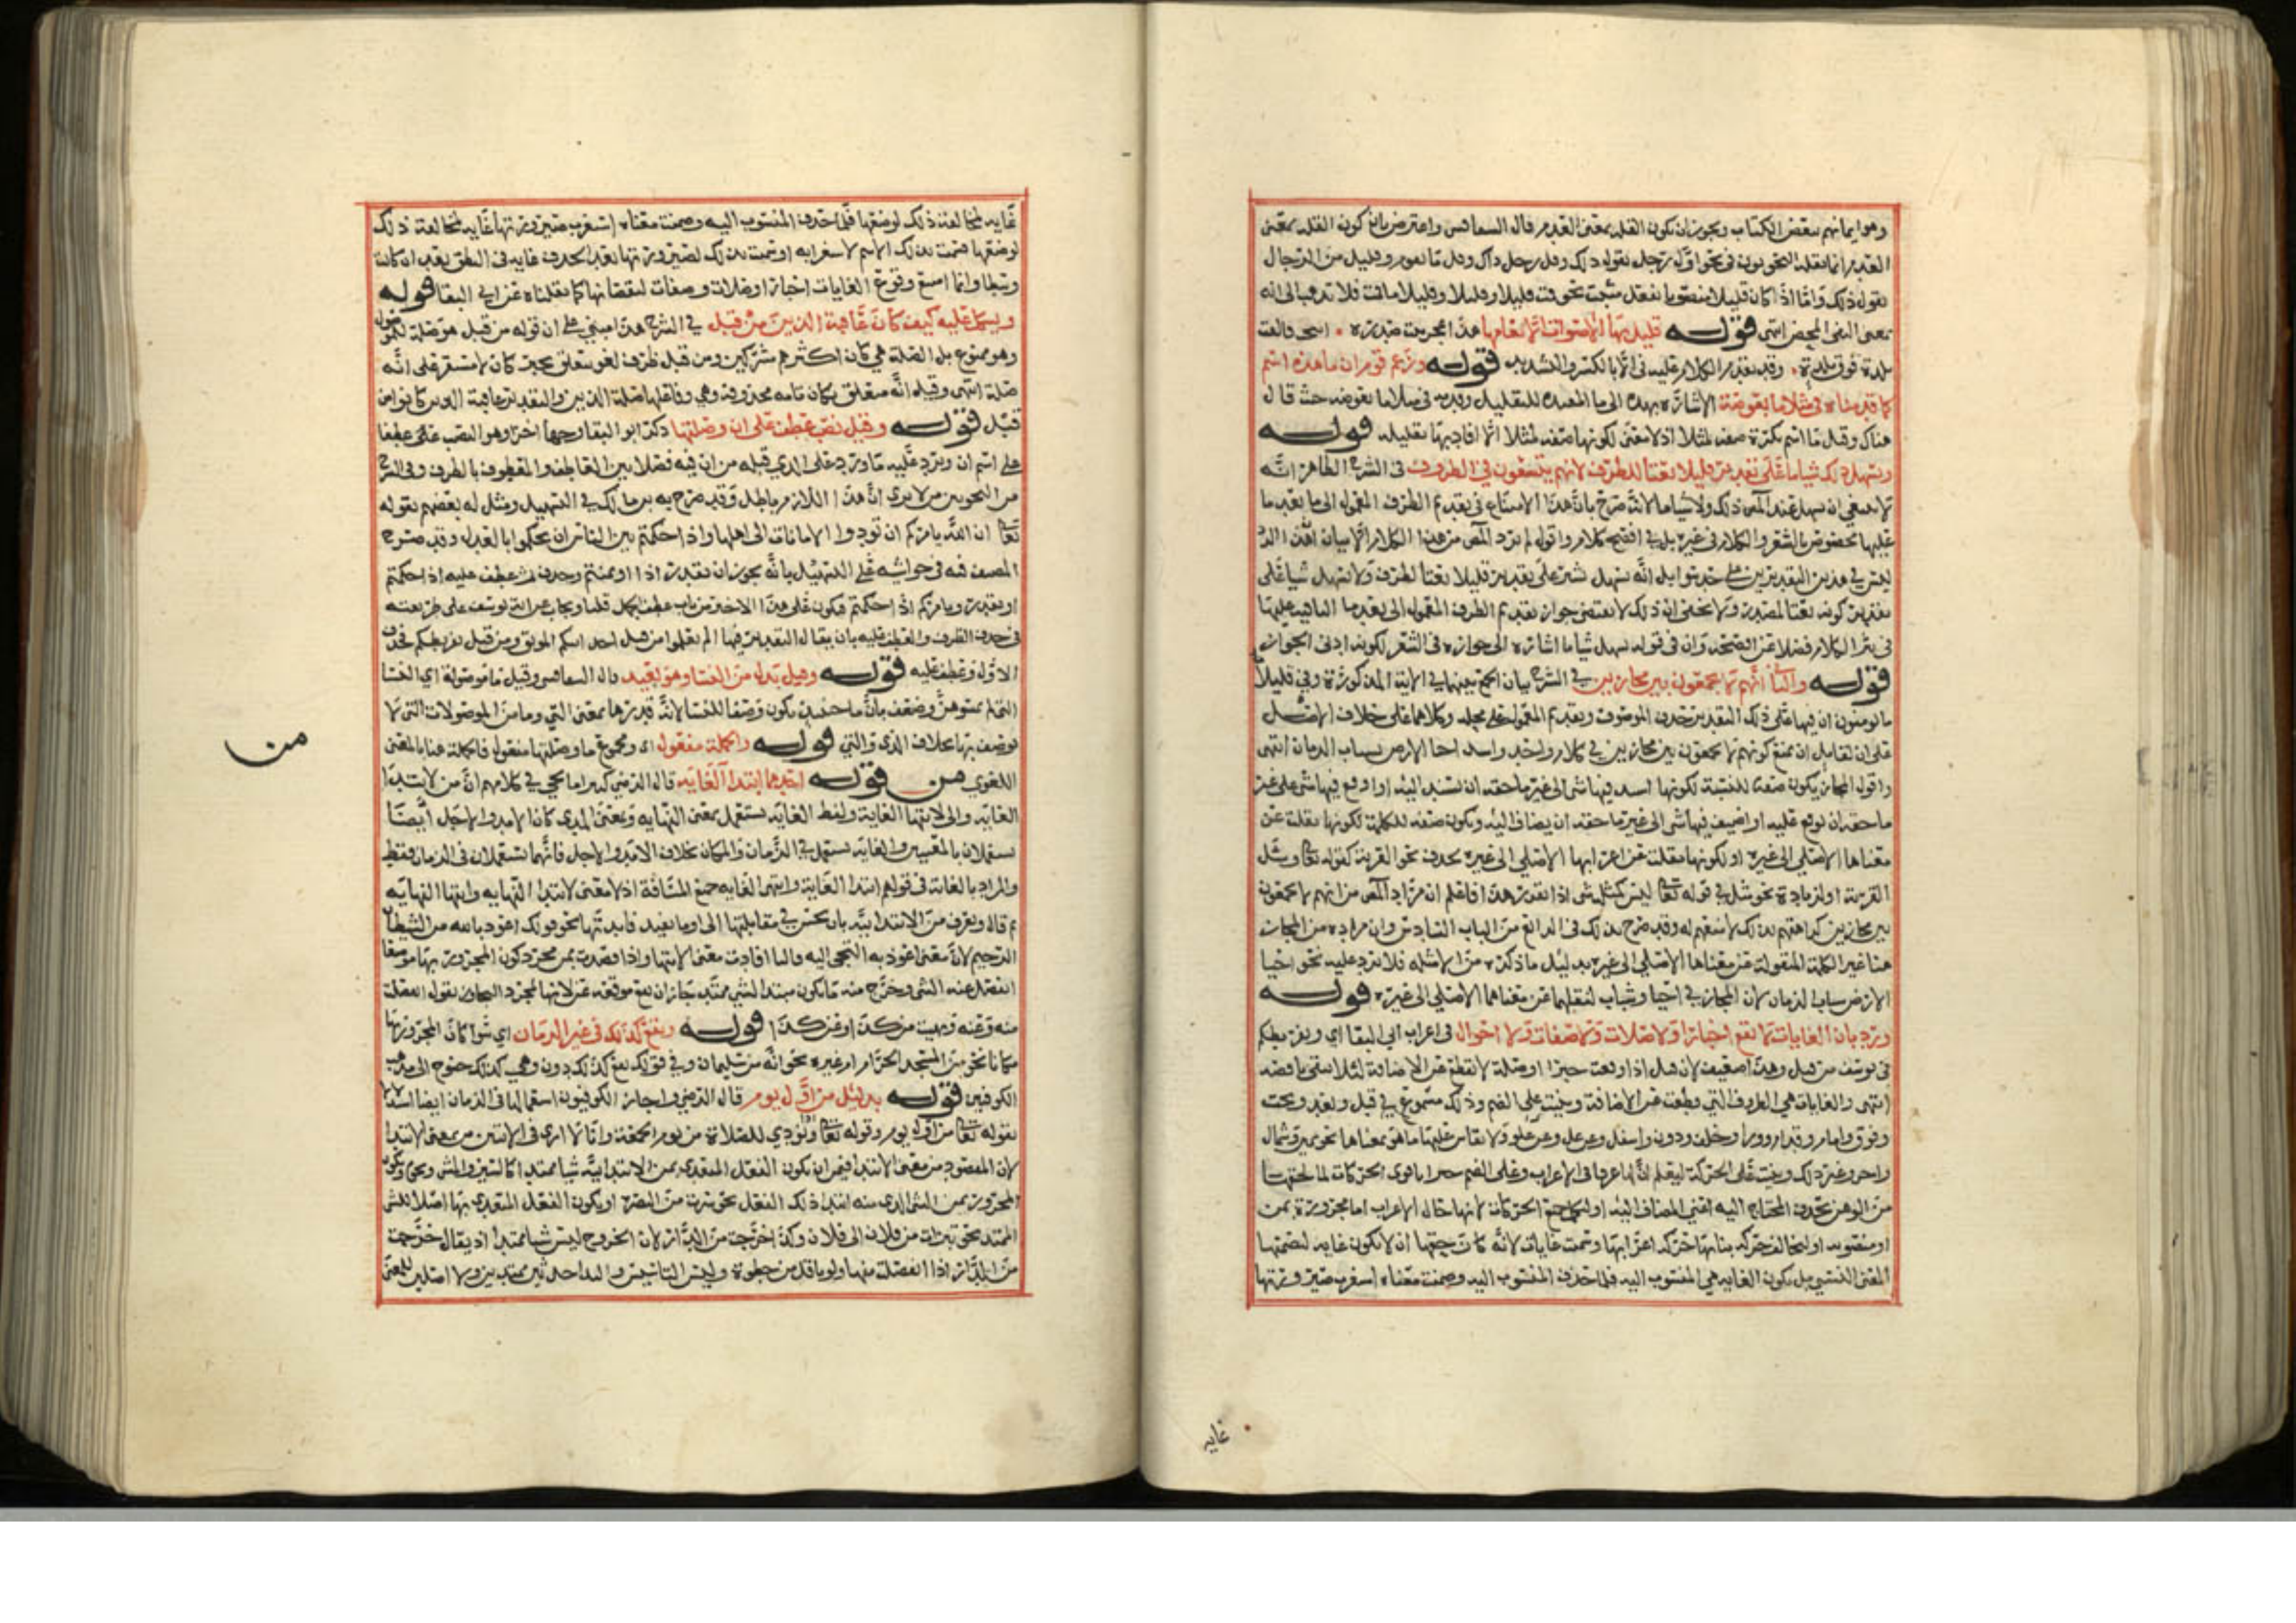 وهو ايمانهم ببعض الكتاب ويجوز ان تكون القله بمعنى العدم قال السفاقسي واعترض بان كون القله بمعنى
العدم انما نقله النحويون في نحو اقل رجل يقول ذلك وقل رجل ذاك وقل ما يقوم وقليل من الرجال
يقول ذلك واما اذا كان قليلا منصوبا بفعل مثبت نحو قمت قليلا او قليلا وقليلا ما قمت فلا تذهب الى انه
بمعنى النفي المحض انتهى قوله قليل بها الاصوات الا بغامها هذا عجز بيت صدره انيخت فالقت
بلدة فوق بلدة وقد تقدم الكلام عليه في الا بالكسر والتشديد قوله وزعم قوم ان ما هذه اسم
كما قدمناه في مثلا ما بعوضة الاشارة بهذه الى ما المفيدة للتقليل وقدمه في مثلا ما بعوضه حيث قال
هناك وقيل ما اسم نكرة صفه لمثلا اذ لا معنى لكونها صفه لمثلا الا افادتها تقليله قوله
ويسهل ذلك شيا ما على تقدير قليلا نعتا للظرف لانهم يتسعون في الظروف في الشرح الظاهر انه
لا ينبغي ان يسهل عند المص ذلك ولا شيا ما لانه صرح بان هذا الامتناع في تقديم الظرف المعمول الى ما بعد ما
عليها مخصوص بالشعر والكلام في غيره بل في افصح كلام واقول لم يرد المص من هذا الكلام الا بيان
في نثر الكلام فضلا عن افصحه وان في قوله يسهل شيا ما اشارة الى جوازه في الشعر لكونه ادنى الجواز
قوله والثاني انهم لا يجمعون بين مجازين في الشرح بيان الجمع بينها في الاية المذكورة وهي قليلا
ما يومنون ان فيها على ذلك التقدير حذف الموصوف وتقديم المعمول على محله وكلاهما على خلاف الاصل
على ان لقايل ان يمنع كونهم لا يجمعون بين مجازين في كلام واحد واسند احيا الارض شباب الزمان انتهى
واقول المجاز يكون صفة للنسبة لكونها اسند فيها شي الى غير ما حقه ان يسند اليه او اوقع فيها شي على غير
ما حقه ان يوقع عليه او اضيف فيها شي الى غير ما حقه ان يضاف اليه ويكون صفه للكلمة لكونها نقلت عن
معناها الاصلي الى غيره او لكونها نقلت عن اعرابها الاصلي الى غيره بحذف نحو القرية كقوله تعالى وسل
القرية او لزيادة نحو مثل في قوله تعالى ليس كمثله شي اذا تقرر هذا فاعلم ان مراد المص من انهم لا يجمعون
بين مجازين كراهتهم ذلك لا منعهم له وقد صرح بذلك في الرابع من الباب السادس وان مراده من المجاز
هنا غير الكلمة المنقولة عن معناها الاصلي الى غيره بدليل ما ذكره من الامثله فلا يرد عليه نحو احيا
الارض شباب الزمان لان المجاز في احيا وشباب لنقلهما عن معناهما الاصلي الى غيره قوله
ويرد بان الغايات لا تقع اخبارا ولا صلات ولا صفات ولا احوال في اعراب ابي البقا اي وتفريطكم
في يوسف من قبل وهذا ضعيف لان قبل اذا وقعت خبرا او صلة لا تقطع عن الاضافة لئلا تبقى ناقصه
انتهى والغايات هي الظروف التي قطعت عن الاضافة وبنيت على الضم وذلك مسموع في قبل وبعد وتحت
وفوق وامام وقدام وورا وخلف ودون واسفل ومن عل ومن علو ولا يقاس عليها ما هو بمعناها نحو يمين وشمال
من الوهن بحذف المحتاج اليه اعني المضاف اليه
المعنى النسبي بل تكون الغايه هي المنسوب اليه فلما حذف المنسوب اليه وضمنت معناه استغرب صيرورتها
غايه
غايه لمخالفة ذلك لوضعها فلما حذف المنسوب اليه وضمنت معناه استغرب صيرورتها غايه لمخالفة ذلك
لوضعها فسميت بذلك الاسم لاستغرابه او سميت بذلك لصيرورتها بعد الحذف غايه في النطق بعد ان كانت
وسطا وانما امتنع وقوع الغايات اخبارا وصلات وصفات لنقصانها كما نقلناه عن ابي البقا قوله
ويشكل عليه كيف كان عاقبة الذين من قبل في الشرح هذا مبني على ان قوله من قبل هو صلة الموصول
وهو ممنوع بل الصلة هي كان اكثرهم مشركين ومن قبل ظرف لغو متعلق بخبر كان لا مستقر على انه
صلة انتهى وقيل انه متعلق بكان تامه محذوفة وهي وفاعلها صلة الذين والتقدير عاقبة الذين كانوا من
قبل قوله وقيل نصب عطف على ان وصلتها ذكر ابو البقا وجها اخر وهو النصب على عطفا
على اسم ان ويرد عليه ما ورد على الذي قبله من ان فيه فصلا بين العاطف والمعطوف بالظرف وفي الشرح
من النحويين من لا يرى ان هذا اللازم باطل وقد صرح به ابن مالك في التسهيل ومثل له بعضهم بقوله
تعالى ان الله يامركم ان تودوا الامانات الى اهلها واذا حكمتم بين الناس ان تحكموا بالعدل وقد صرح
المصنف فيه في حواشيه على التسهيل بانه يجوز ان
او يقدر ويامركم اذا حكمتم فيكون على هذا الاخير من باب عطف الجمل
في حذف الظرف والعطف عليه بان يقال التقدير فيها الم تعلموا من قبل اخذ ابيكم الموثق ومن قبل تفريطكم فحذف
الاول وعطف عليه قوله وقيل بدل من النسا وهو بعيد قال السفاقسي وقيل ما موصولة اي النسا
التي لم تمسوهن وضعف بان ما حينيذ تكون وصفا للنسا لانه قدرها بمعنى التي وما من الموصولات التي لا
يوصف بها بخلاف الذي والتي قوله والجملة مفعول اي ومجموع ما وصلتها مفعول فالجملة هنا بالمعنى
اللغوي من قوله احدهما ابتدا الغاية قال الرضي كثيرا ما يجي في كلامهم ان من لابتدا
الغاية والى لانتها الغاية ولفظ الغاية تستعمل بمعنى النهايه وبمعنى المدى كما ان الامد والاجل ايضا
يستعملان بالمعنيين والغاية تستعمل في الزمان والمكان بخلاف الامد والاجل فانهما تستعملان في الزمان فقط
والمراد بالغاية في قولهم ابتدا الغاية وانتها الغايه جميع المسافة اذ لا معنى لابتدا النهايه وانتها النهايه
ثم قال وتعرف من الابتدائية بان يحسن في مقابلتها الى او ما يفيد فايدتها نحو قولك اعوذ بالله من الشيطان
الرجيم لان معنى اعوذ به التجي اليه فالبا افادت معنى الانتها واذا قصدت بمن مجرد كون المجرور بها موضعا
انفصل عنه الشي وخرج منه لا كونه مبتدا لشي ممتد جاز ان يقع موقعه عن لانها لمجرد التجاوز تقول انفصلت
منه وعنه ونهيت من كذا او عن كذا قوله وتقع كذلك في غير الزمان اي سوا كان المجرور بها
مكانا نحو من المسجد الحرام ام غيره نحو انه من سليمان وفي قولك تقع كذلك دون وهي كذلك جنوح الى مذهب
الكوفيين قوله بدليل من اول يوم قال الرضي واجاز الكوفيون استعمالها في الزمان ايضا استدلالا
بقوله تعالى من اول يوم وقوله تعالى ونودي للصلاة من يوم الجمعة وانا لا ارى في الايتين من معنى الابتدا
لان المقصود من معنى الابتدا في من ان يكون الفعل المتعدي بمن الابتدائية شيا ممتدا كالسير والمشي ونحوه ويكون
المجرور بمن الشي الذي منه ابتدا ذلك الفعل نحو سرت من البصرة او يكون الفعل المتعدي بها اصلا للشي
الممتد نحو تبرات من فلان الى فلان وكذا خرجت من الدار لان الخروج ليس شيا ممتدا اذ يقال خرجت
من الدار اذا انفصلت منها ولو باقل من خطوة وليس التاسيس والندا حدثين ممتدين ولا اصلين للمعنى
من